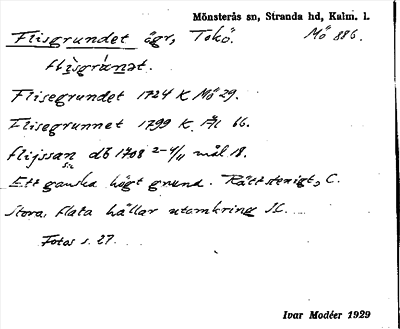 Mönsterås sn, Stranda hd, Kalm. l.
Flisgrundet ögr, Tokö. Mö 886.
flìsgrúnət.
Flisegrundet 1724 K Mö 29.
Flisegrunnet 1799 K Ål 66.
flijssan db 1708 2-4/11 mål 18.
sic
Ett ganska högt grund. Rätt stenigt, C.
Stora, flata hällar utomkring
Fotos s. 27.
Ivar Modéer 1929